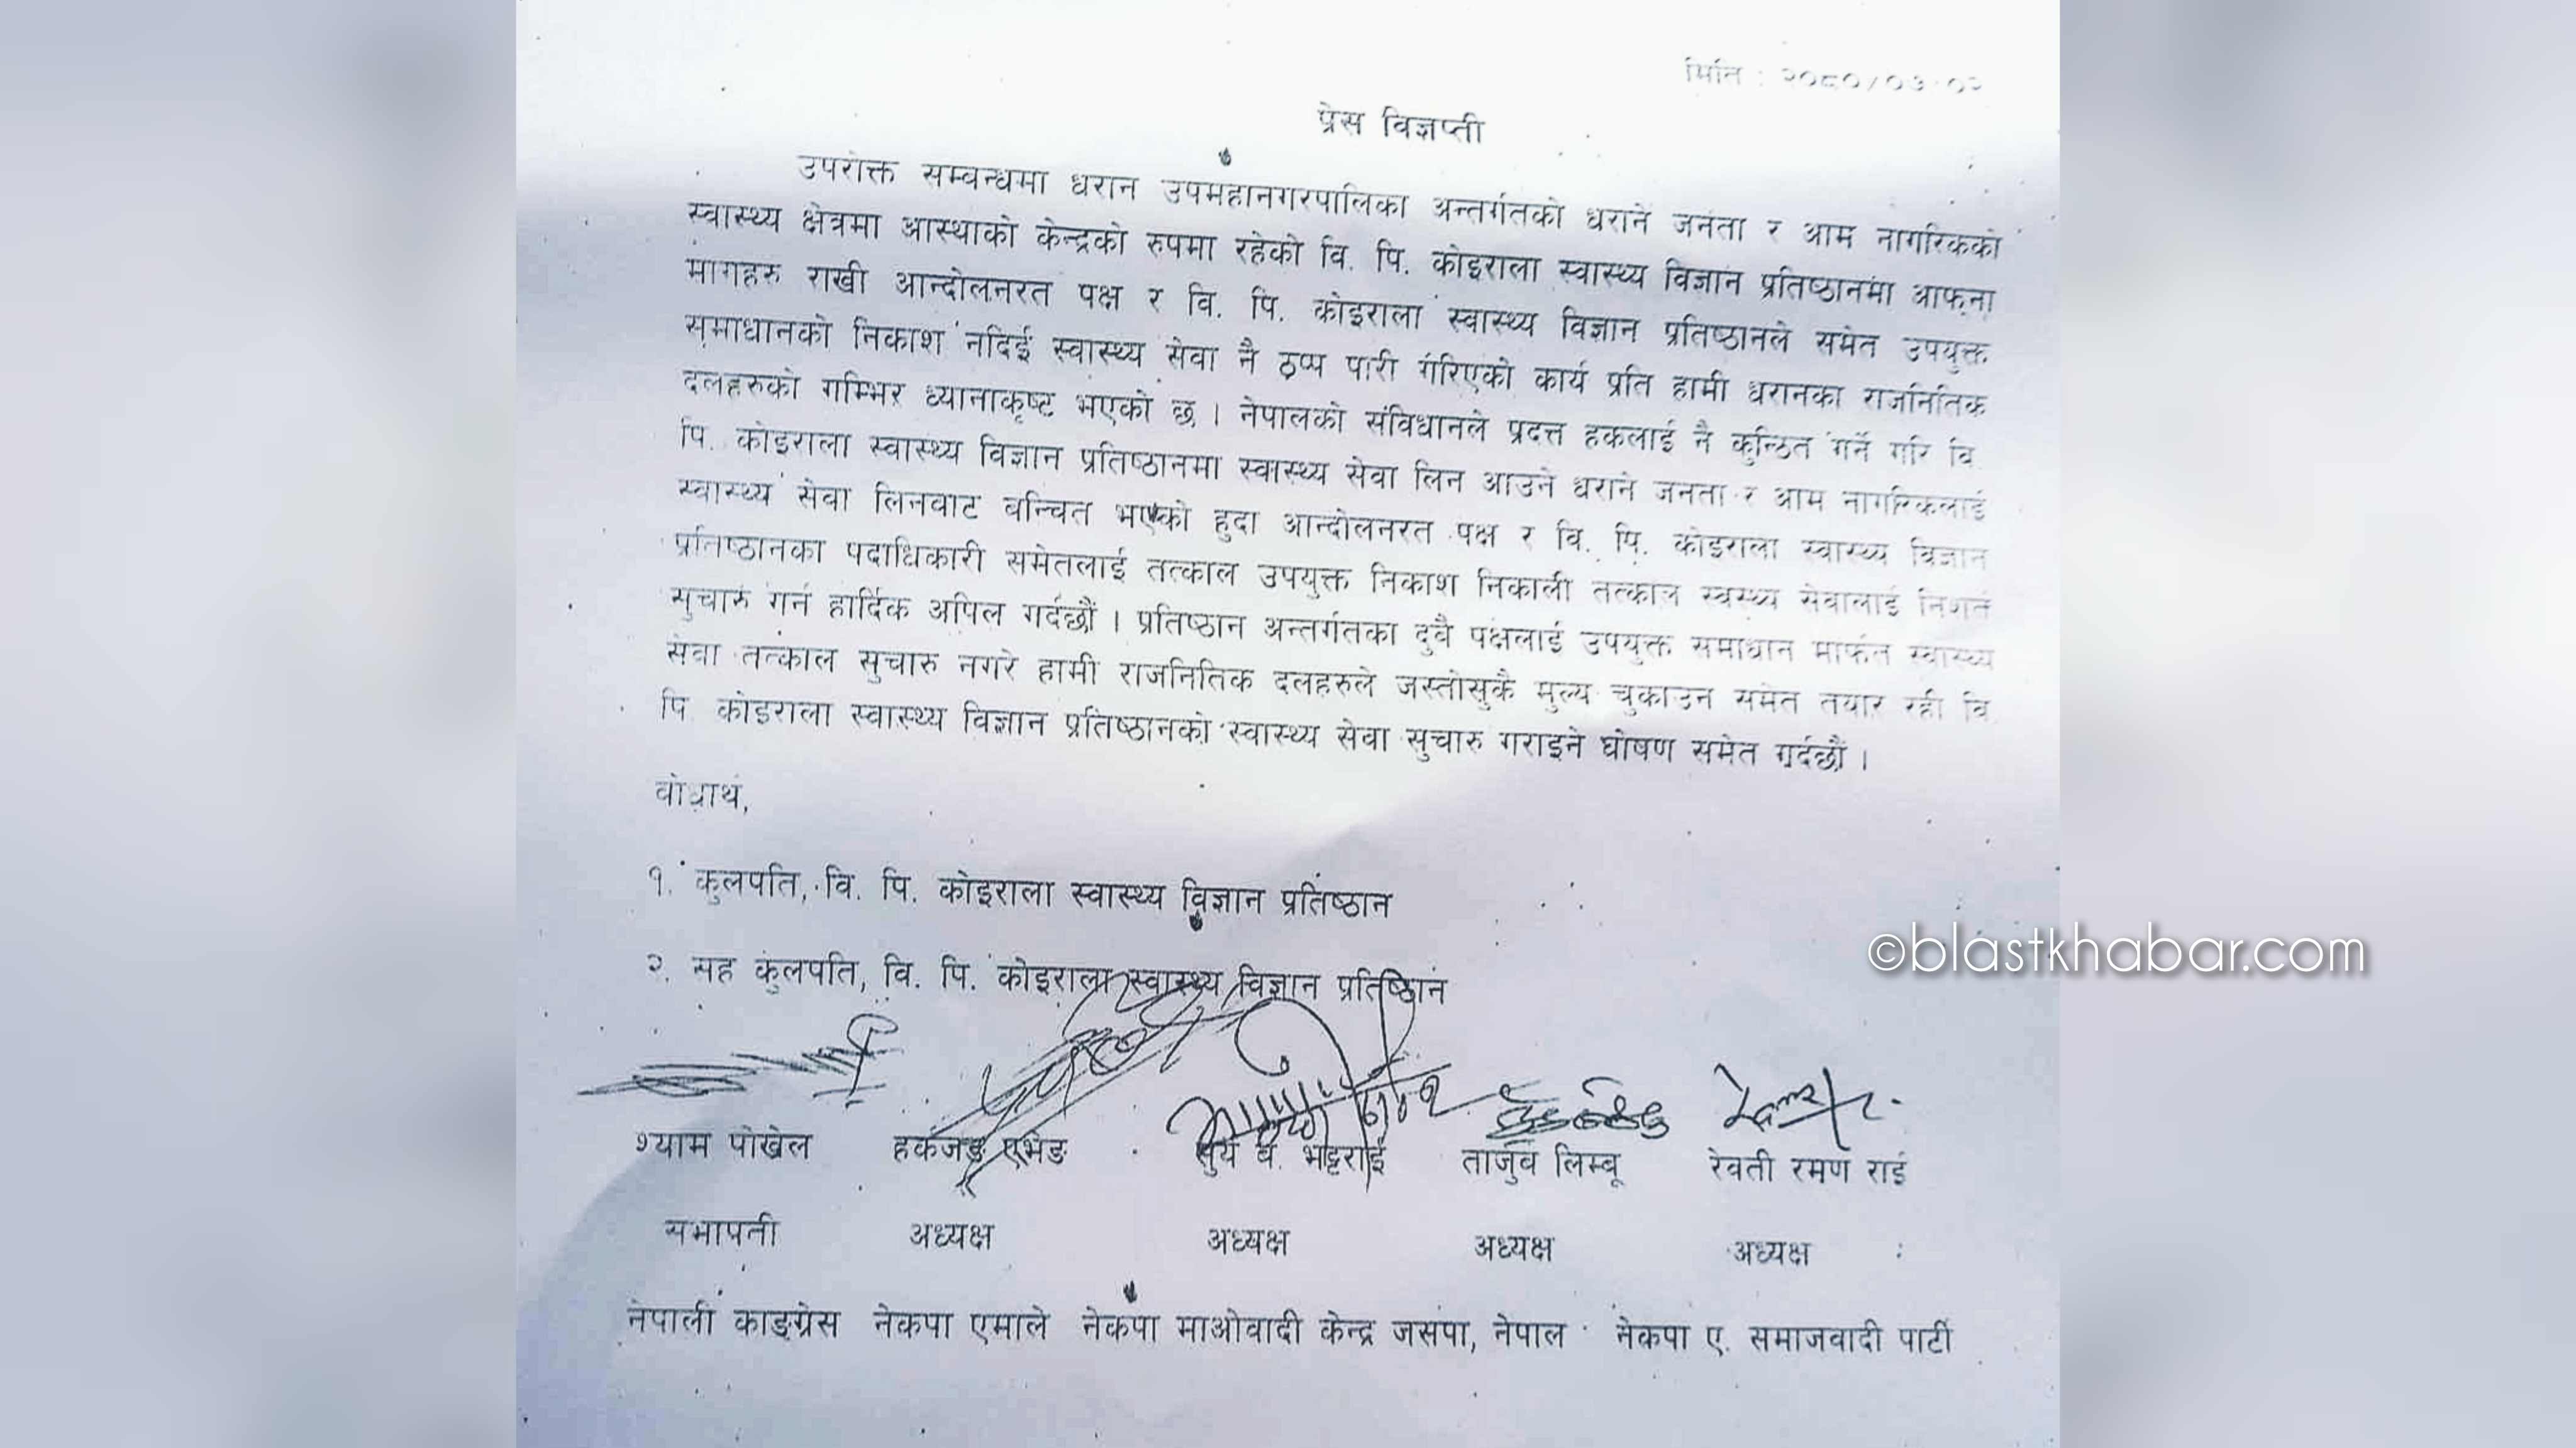 मिति : २०८०/०७/०२
प्रेस विज्ञप्ती
उपरोक्त सम्वन्धमा धरान उपमहानगरपालिका अन्तर्गतको धराने जनता र आम नागरिकको
स्वास्थ्य क्षेत्रमा आस्थाको केन्द्रको रुपमा रहेको वि. पि. कोइराला स्वास्थ्य विज्ञान प्रतिष्ठानमा आफ्ना
मागहरु राखी आन्दोलनरत पक्ष र वि. पि. कोइराला स्वास्थ्य विज्ञान प्रतिष्ठानले समेत उपयुक्त
समाधानको निकाश नदिई स्वास्थ्य सेवा नै ठप्प पारी गरिएको कार्य प्रति हामी धरानका राजनितिक
दलहरुको गम्भिर ध्यानाकृष्ट भएको छ । नेपालको संविधानले प्रदत्त हकलाई नै कुन्ठित गर्ने गरि वि.
पि. कोइराला स्वास्थ्य विज्ञान प्रतिष्ठानमा स्वास्थ्य सेवा लिन आउने धराने जनता र आम नागरिकलाई
स्वास्थ्य सेवा लिनवाट वन्चित भएको हुदा आन्दोलनरत पक्ष र वि. पि. कोइराला स्वास्थ्य विज्ञान
प्रतिष्ठानका पदाधिकारी समेतलाई तत्काल उपयुक्त निकाश निकाली तत्काल स्वस्थ्य सेवालाई निशर्त
सुचारु गर्न हार्दिक अपिल गर्दछौं । प्रतिष्ठान अन्तर्गतका दुवै पक्षलाई उपयुक्त समाधान मार्फत स्वास्थ्य
सेवा तत्काल सुचारु नगरे हामी राजनितिक दलहरुले जस्तोसुकै मुल्य चुकाउन समेत तयार रही वि.
पि. कोइराला स्वास्थ्य विज्ञान प्रतिष्ठानको स्वास्थ्य सेवा सुचारु गराइने घोषण समेत गर्दछौं ।
वोधार्थ,
१. कुलपति, वि. पि. कोइराला स्वास्थ्य विज्ञान प्रतिष्ठान
२. सह कुलपति, वि. पि. कोइराला स्वास्थ्य विज्ञान प्रतिष्ठान
©blastkhabar.com
श्याम पोख्रेल हर्कजङ सुर्य ब. भट्टराई लिम्बू रेवती रमण राई
सभापती अध्यक्ष अध्यक्ष अध्यक्ष अध्यक्ष
नेपाली काङ्ग्रेस नेकपा एमाले नेकपा माओवादी केन्द्र जसपा, नेपाल नेकपा ए. समाजवादी पार्टी